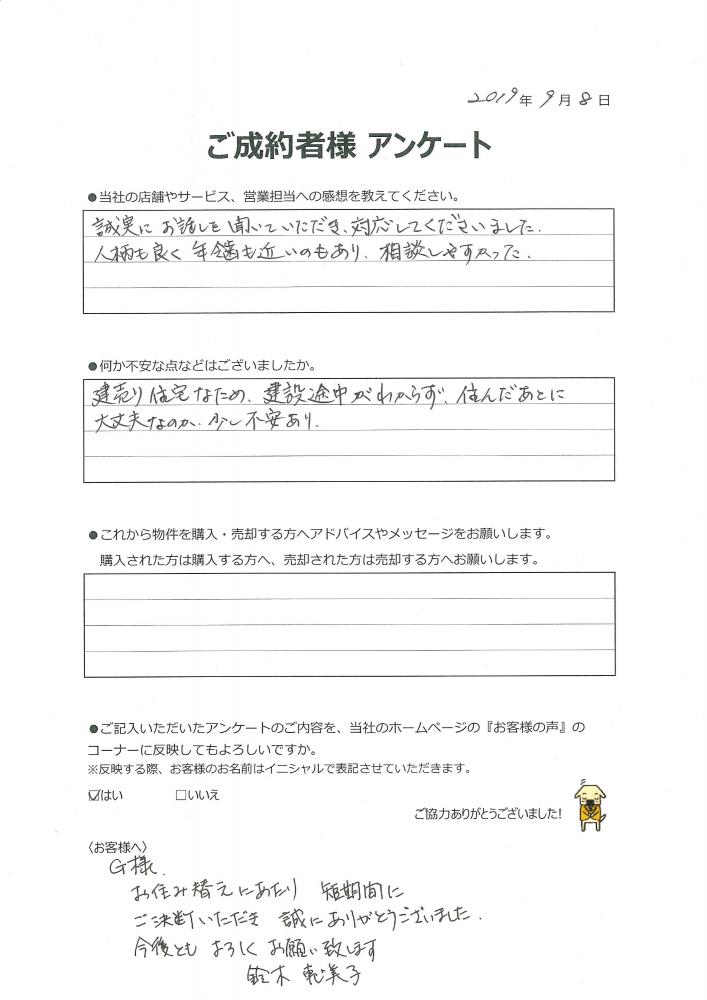 2019年9月8日
ご成約者様 アンケート
●当社の店舗やサービス、営業担当への感想を教えてください。
誠実に お話しを 聞いていただき、対応してくださいました.
人柄も良く 年令歯も近いのもあり、相談しやすかった.
●何か不安な点などはございましたか。
建売り住宅なため、建設途中がわからず、住んだあとに
大丈夫なのか、少し不安あり.
●これから物件を購入・売却する方へアドバイスやメッセージをお願いします。
購入された方は購入する方へ、売却された方は売却する方へお願いします。
●ご記入いただいたアンケートのご内容を、当社のホームページの『お客様の声』の
コーナーに反映してもよろしいですか。
※反映する際、お客様のお名前はイニシャルで表記させていただきます。
☑はい □いいえ
ご協力ありがとうございました!
〈お客様へ〉
G様.
お住み替えにあたり 短期間に
ご決断いただき 誠にありがとうございました.
今後とも よろしく お願い致します
鈴木 美子